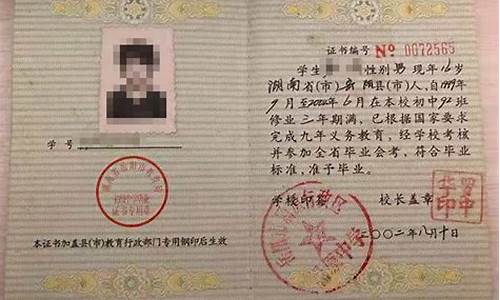 证书编号 No 0072565
学生 性别 男 现年 16 岁
湖南省(市) 县(市)人,自1999年
9月至2002年6月在本校初中92班
修业三年期满,已根据国家要求
完成九年义务教育,经学校考核
并参加全省毕业会考,符合毕业
标准,准予毕业。
学校印章 校长盖章
二〇〇二年八月十日
学号
证书专用章
本证书加盖县(市)教育行政部门专用钢印后生效